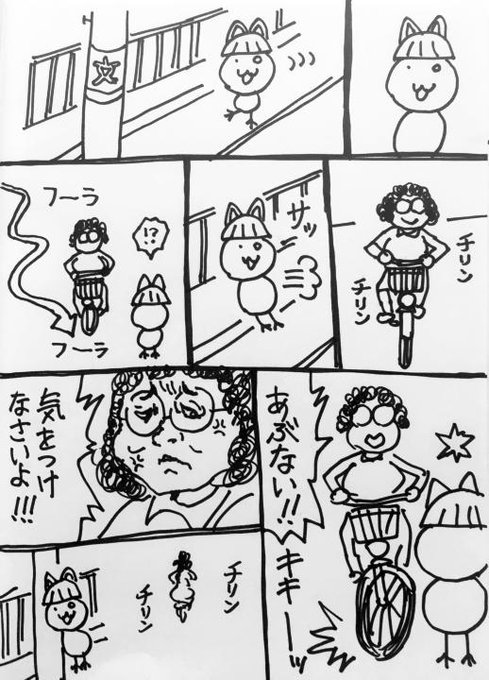 文
チリン
チリン
サッ
!?
フーラ
フーラ
あぶない!!
キキーッ
気をつけ
なさいよ!!!
チリン
チリン